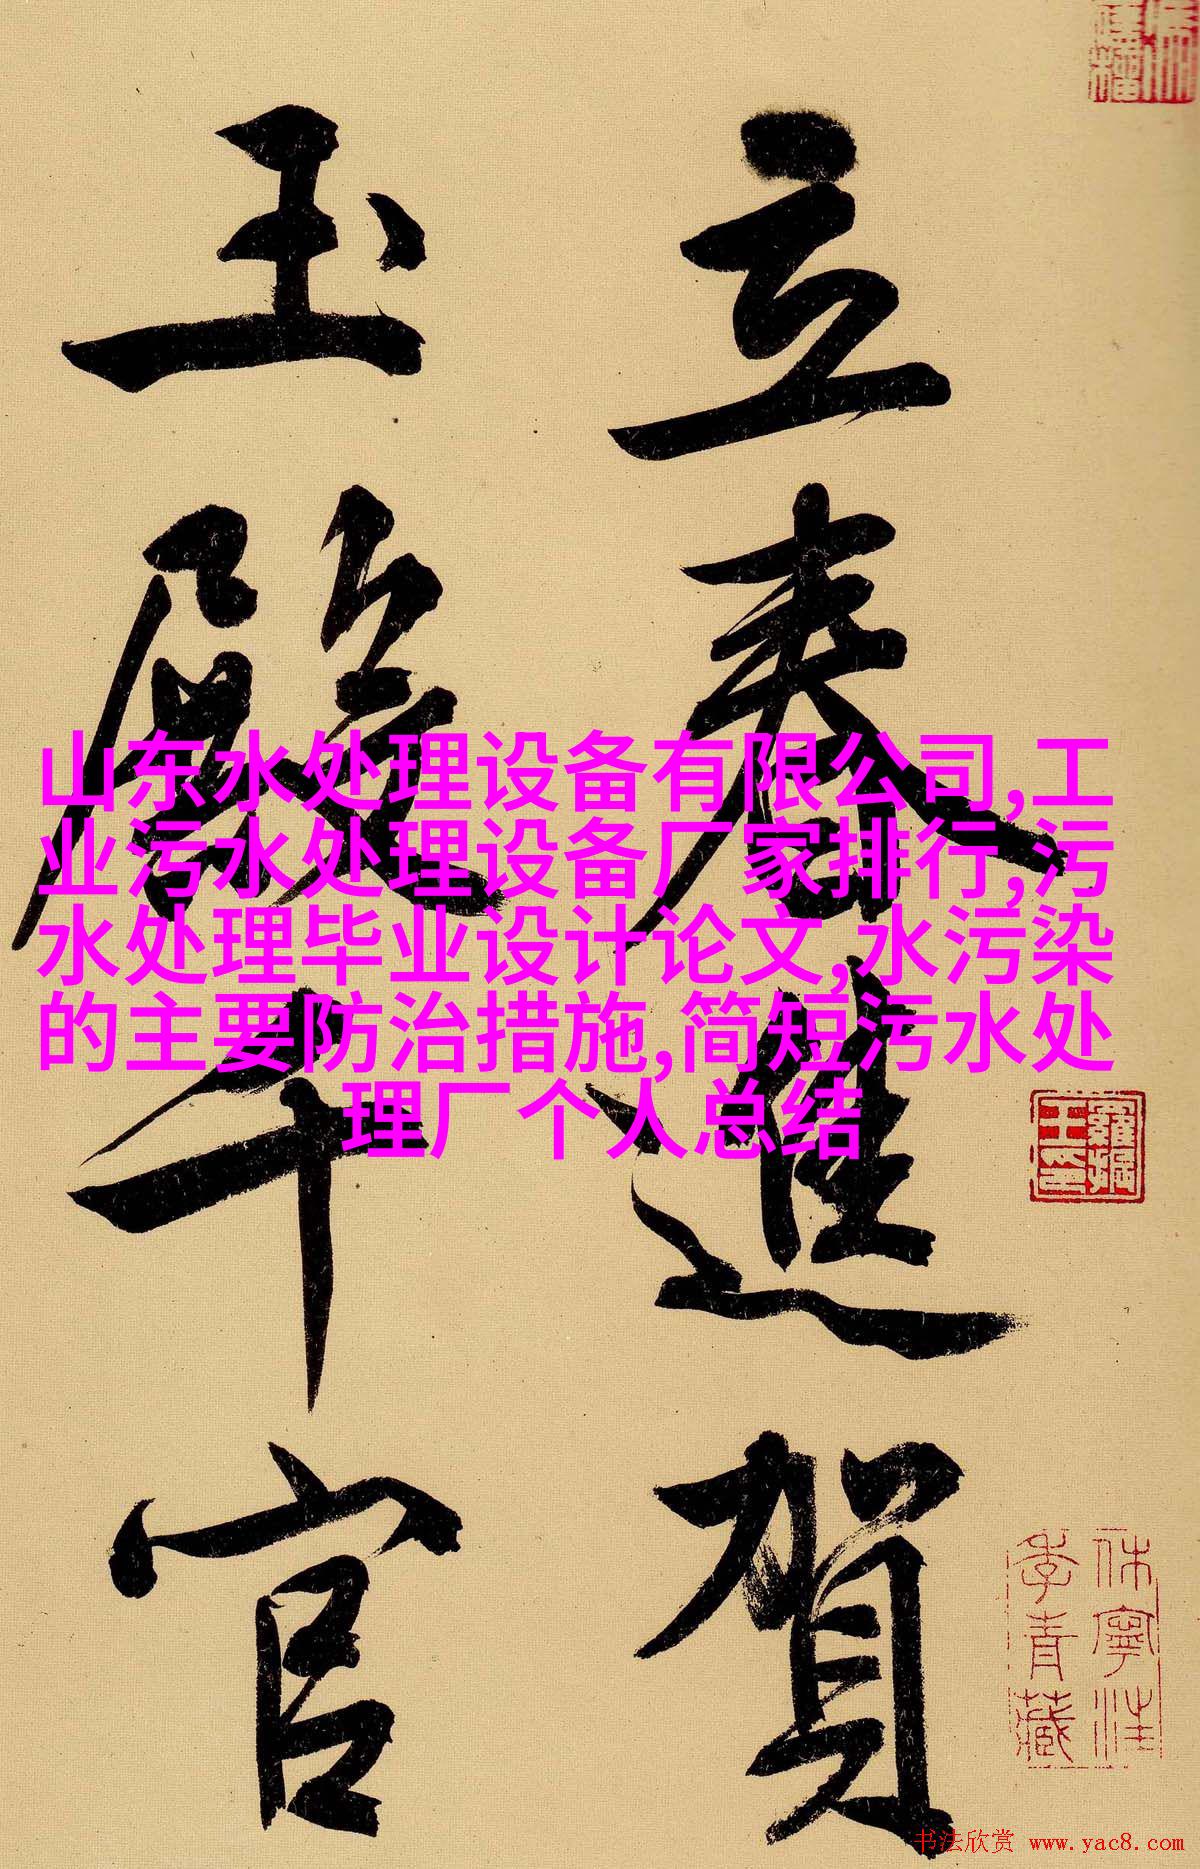 立春進賀
玉殿千官
山东水处理设备有限公司,工
业污水处理设备厂家排行,污
水处理毕业设计论文,水污染
的主要防治措施,简短污水处
理厂个人总结
休寧汪
季青藏
书法欣赏 www.yac8.com